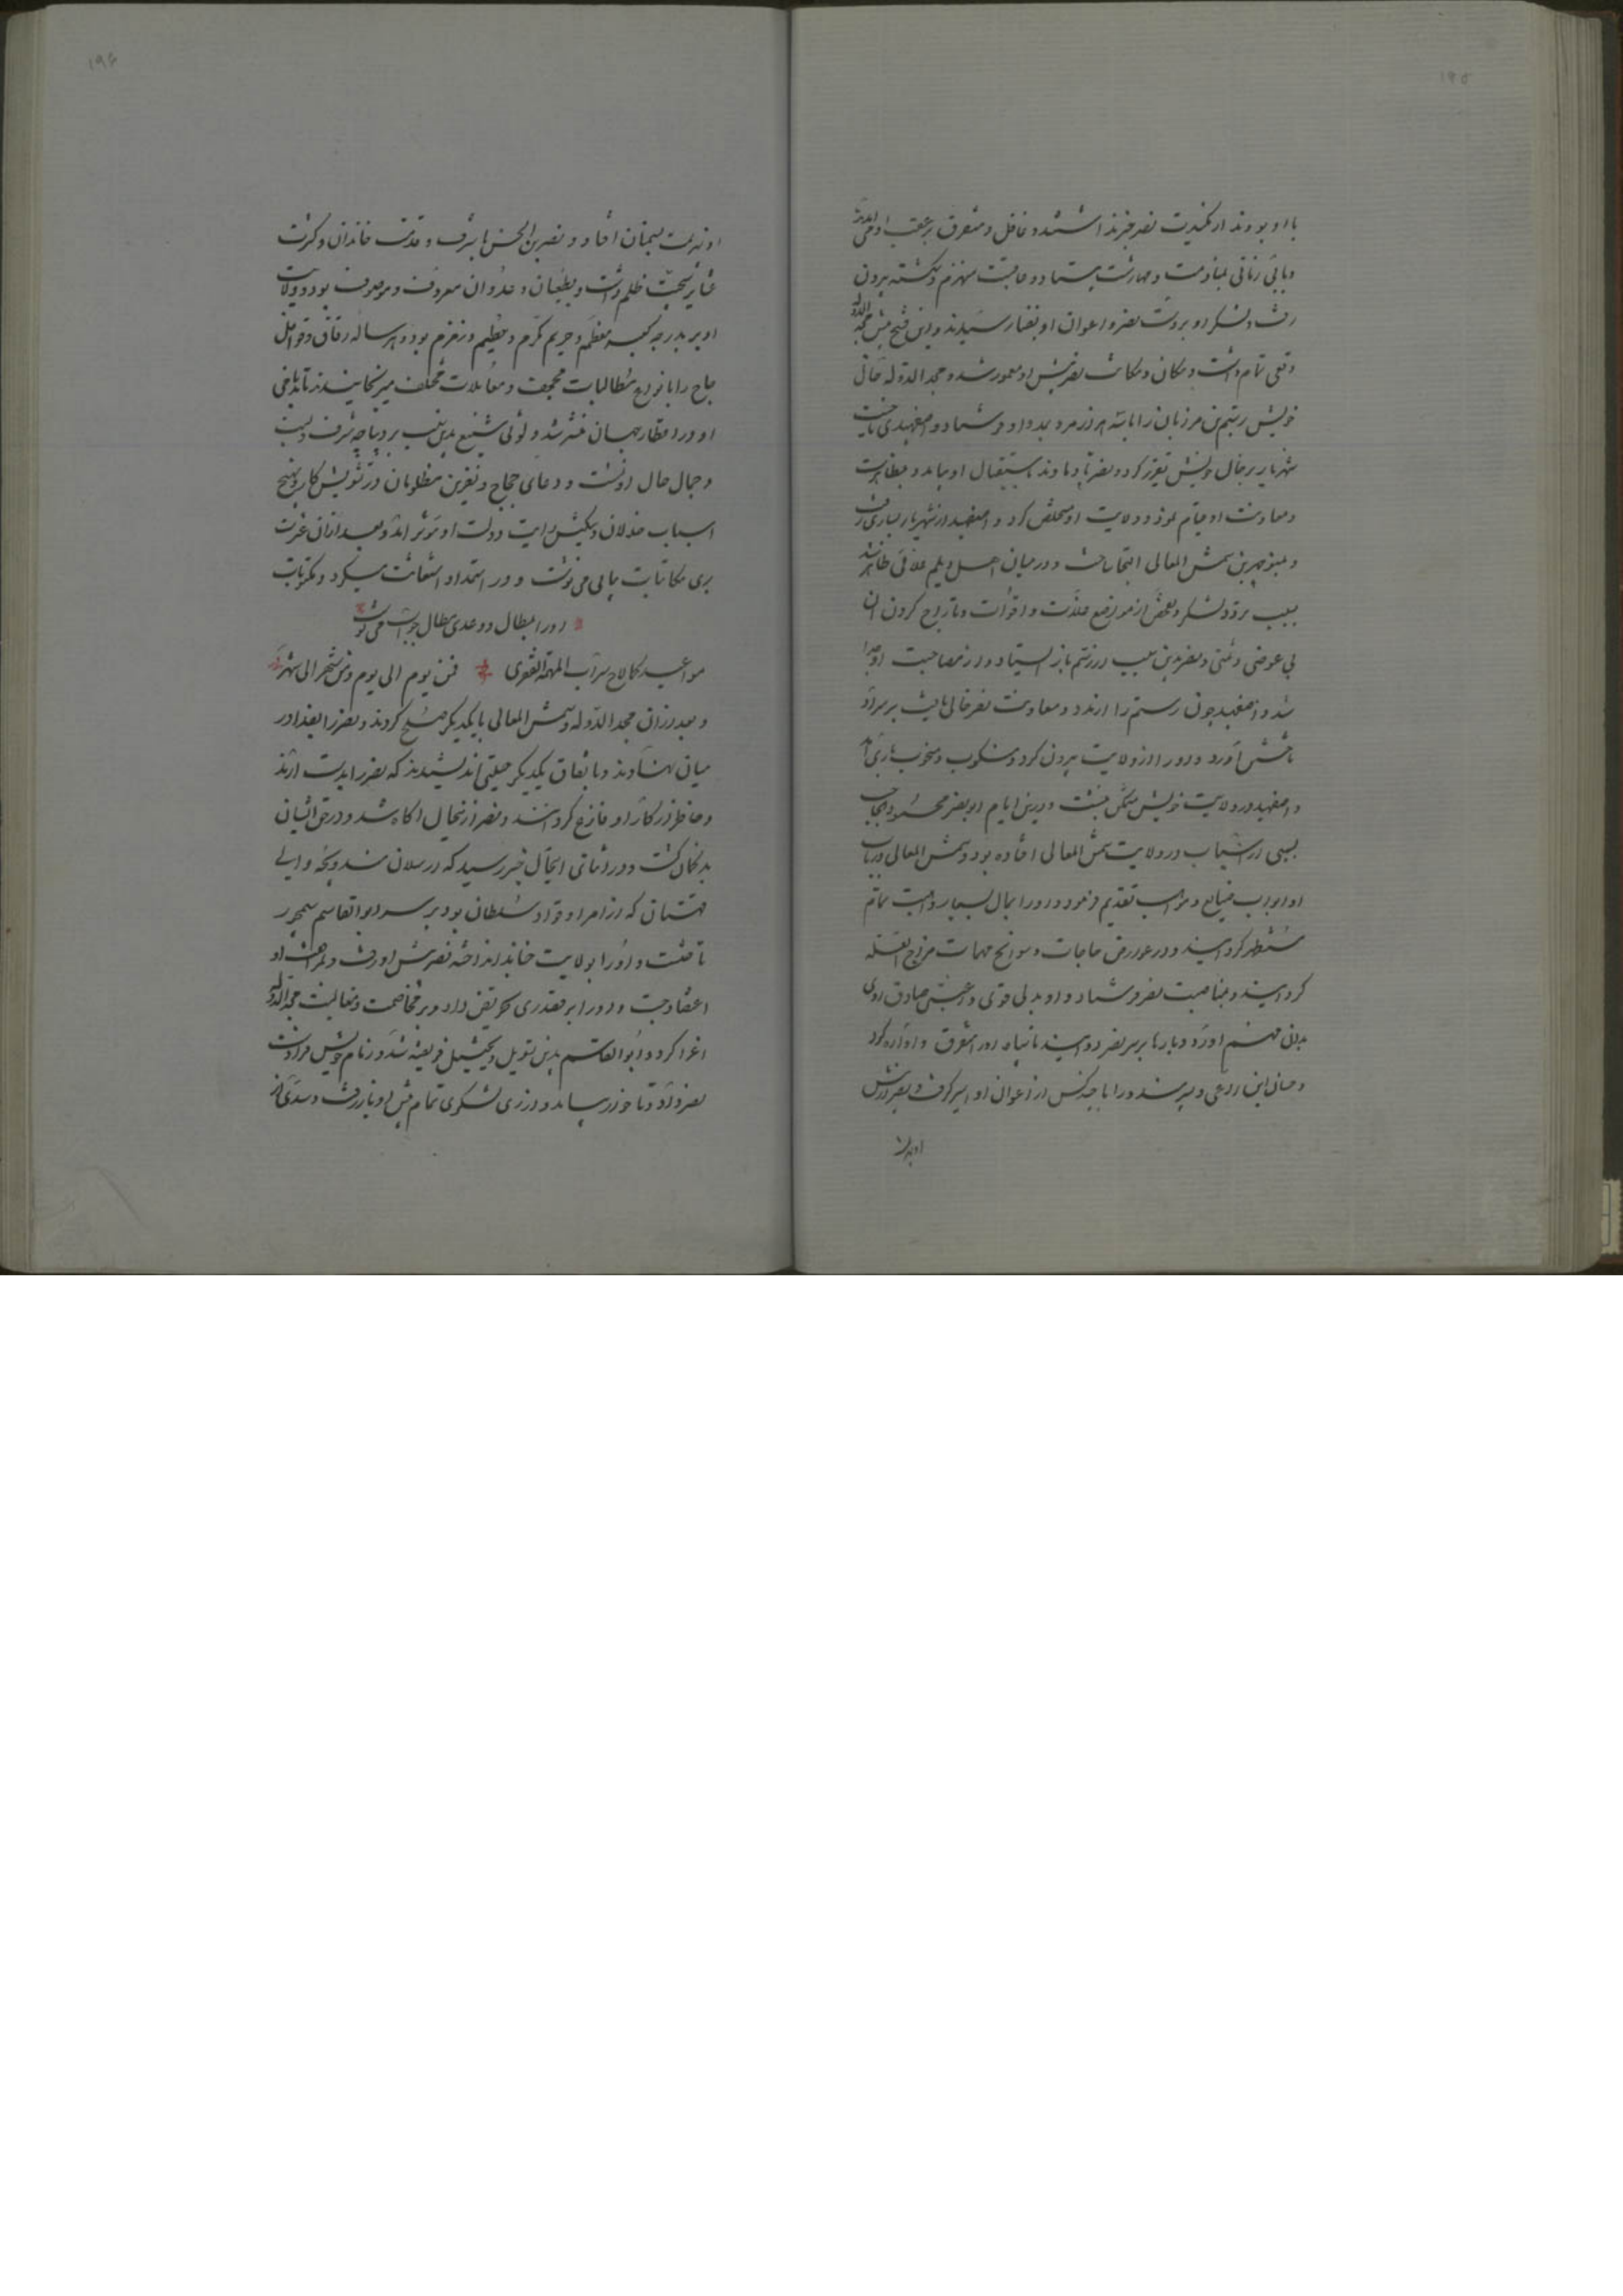 ۱۹۵
با او بودند از مکیدت نصر خبر نداشتند و غافل و متفرق بر عقب او می آمدند
و باتی زمانی بمقاومت و مهارشت بیستاد و عاقبت منهزم و شکسته بیرون
رفت و لشکر او بر دست نصر و اعوان او بقفا رسیدند و این فتح پیش مجد الدوله
وقعی تمام داشت و مکان و مکانت نصر پیش او معمور شد و مجد الدوله خال
خویش رستم بن مرزبان را با سه هزار مرد بدو فرستاد و اصفهبدی ناحیت
شهریار بر خال خویش تقریر کرد و نصر تا دماوند باستقبال او بیامد و بمظاهرت
و معاونت او قیام نمود و ولایت او مستخلص کرد و اصفهبد از شهریار بساری رفت
و بمنوچهر بن شمس المعالی التجا ساخت و در میان اهل دیلم غلائی ظاهر شد
بسبب تردد لشکر و بعضی از مواضع غلات و اقوات و تاراج کردن آن
بی عوضی و ثمنی و نصر بدین سبب از رستم باز ایستاد و از مصاحبت او جدا
شد و اصفهبد چون رستم را از مدد و معاونت نصر خالی یافت بر سر او
تاختن آورد و او را از ولایت بیرون کرد و منکوب و منخوب باری آمد
و اصفهبد در ولایت خویش متمکن بنشست و درین ایام ابو نصر محمود الحاجب
بسببی از اسباب در ولایت شمس المعالی افتاده بود و شمس المعالی در باب
او ابواب صنایع و مواهب تقدیم فرمود و او را بمال بسیار و اهبت تمام
مستظهر کردانید و در عوارض حاجات و سوانح مهمات مزاح العلة
کردانید و بمناصبت نصر فرستاد و او بدلی قوی و رغبتی صادق روی
بدان مهم آورد و بارها بر سر نصر دوانید تا سپاه او را متفرق و آواره کرد
و حسان ابن الداعی و پیرسند و را با چند کس از اعوان او اسیر کرفت و نصر از پیش
او بهزیمت
۱۹۶
او بهزیمت بسمنان افتاد و نصر بن الحسن با شرف و قدمت خاندان و کثرت
عشایر محبت ظلم داشت و بطغیان و عدوان معروف و موصوف بود و ولایت
او بر مدرجه کعبه معظمه و حریم مکرم و حطیم و زمزم بود و هر ساله رفاق و قوافل
حاج را بانواع مطالبات مجحف و معاملات مختلف میرنجانیدند تا بدنامی
او در اقطار جهان منتشر شد و لوثی شنیع بدین سبب بر دیباجه شرف و نسبت
و جمال حال او نشست و دعای حجاج و نفرین مظلومان در تشویش کار و تهییج
اسباب خذلان و تنکیس رایت دولت او مؤثر آمد و بعد از آن عثرت
بری مکاتبات پیاپی می نوشت و در استمداد استغاثت میکرد و مکتوبات
او را بمطال و وعدی بطال جواب می نوشت
مواعید کما لاح سراب المهمة القفری فمن یوم الی یوم و من شهر الی شهر
و بعد از آن مجد الدوله و شمس المعالی با یکدیکر صلح کردند و نصر را بغدا در
میان نهادند و باتفاق یکدیکر حیلتی اندیشیدند که نصر را بدست آرند
و خاطر از کار او فارغ کردانند و نصر از آنحال آکاه شد و در حق ایشان
بدکمان کشت و در اثنای اینحال خبر رسید که ارسلان هندوبچه والی
قهستان که از امرا و قواد سلطان بود بر سر ابو القاسم سمجور
تاخت و او را بولایت خنابد انداخته نصر پیش او رفت و بمرافقت او
اعتضاد جست و او را بر قصد ری تحریض داد و بر مخاصمت و مغالبت مجد الدوله
اغرا کرد و ابو القاسم بدین تسویل و تخییل فریفته شد و زمام خویش فرا دست
نصر داد و تا خوار بیامد و از ری لشکری تمام پیش او باز رفت و سدی از